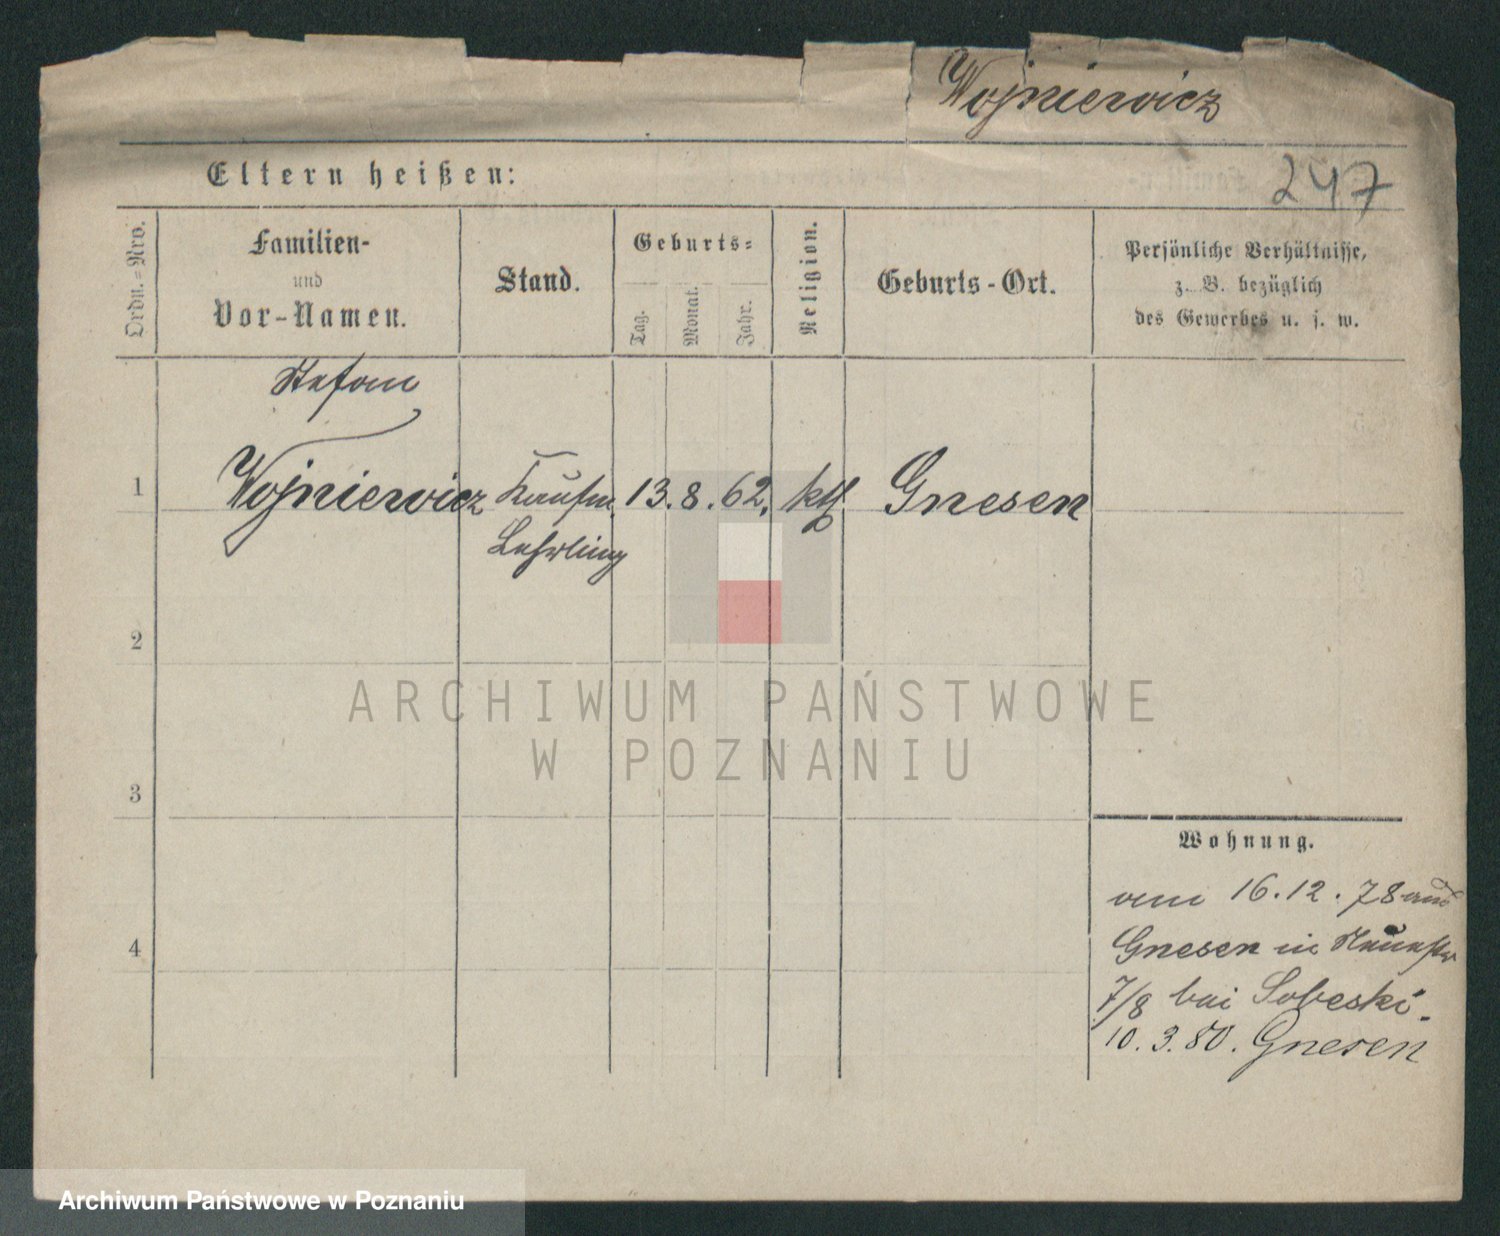 Wojniewicz
Eltern heißen:
247
Ordn.-Nro.
Familien-
und
Vor-Namen.
Stand.
Geburts-
Tag.
Monat.
Jahr.
Religion.
Geburts-Ort.
Persönliche Verhältnisse,
z. B. bezüglich
des Gewerbes u. s. w.
Stefan
1 Wojniewicz Kaufm. 13. 8. 62. kth Gnesen
Lehrling
2
3
4
Wohnung.
vom 16.12.78 aus
Gnesen in
7/8 bei Sobeski.
10.3.80. Gnesen
ARCHIWUM PAŃSTWOWE
W POZNANIU
Archiwum Państwowe w Poznaniu